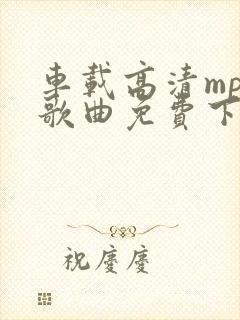 車載高清mp
歌曲免費下
祝慶慶